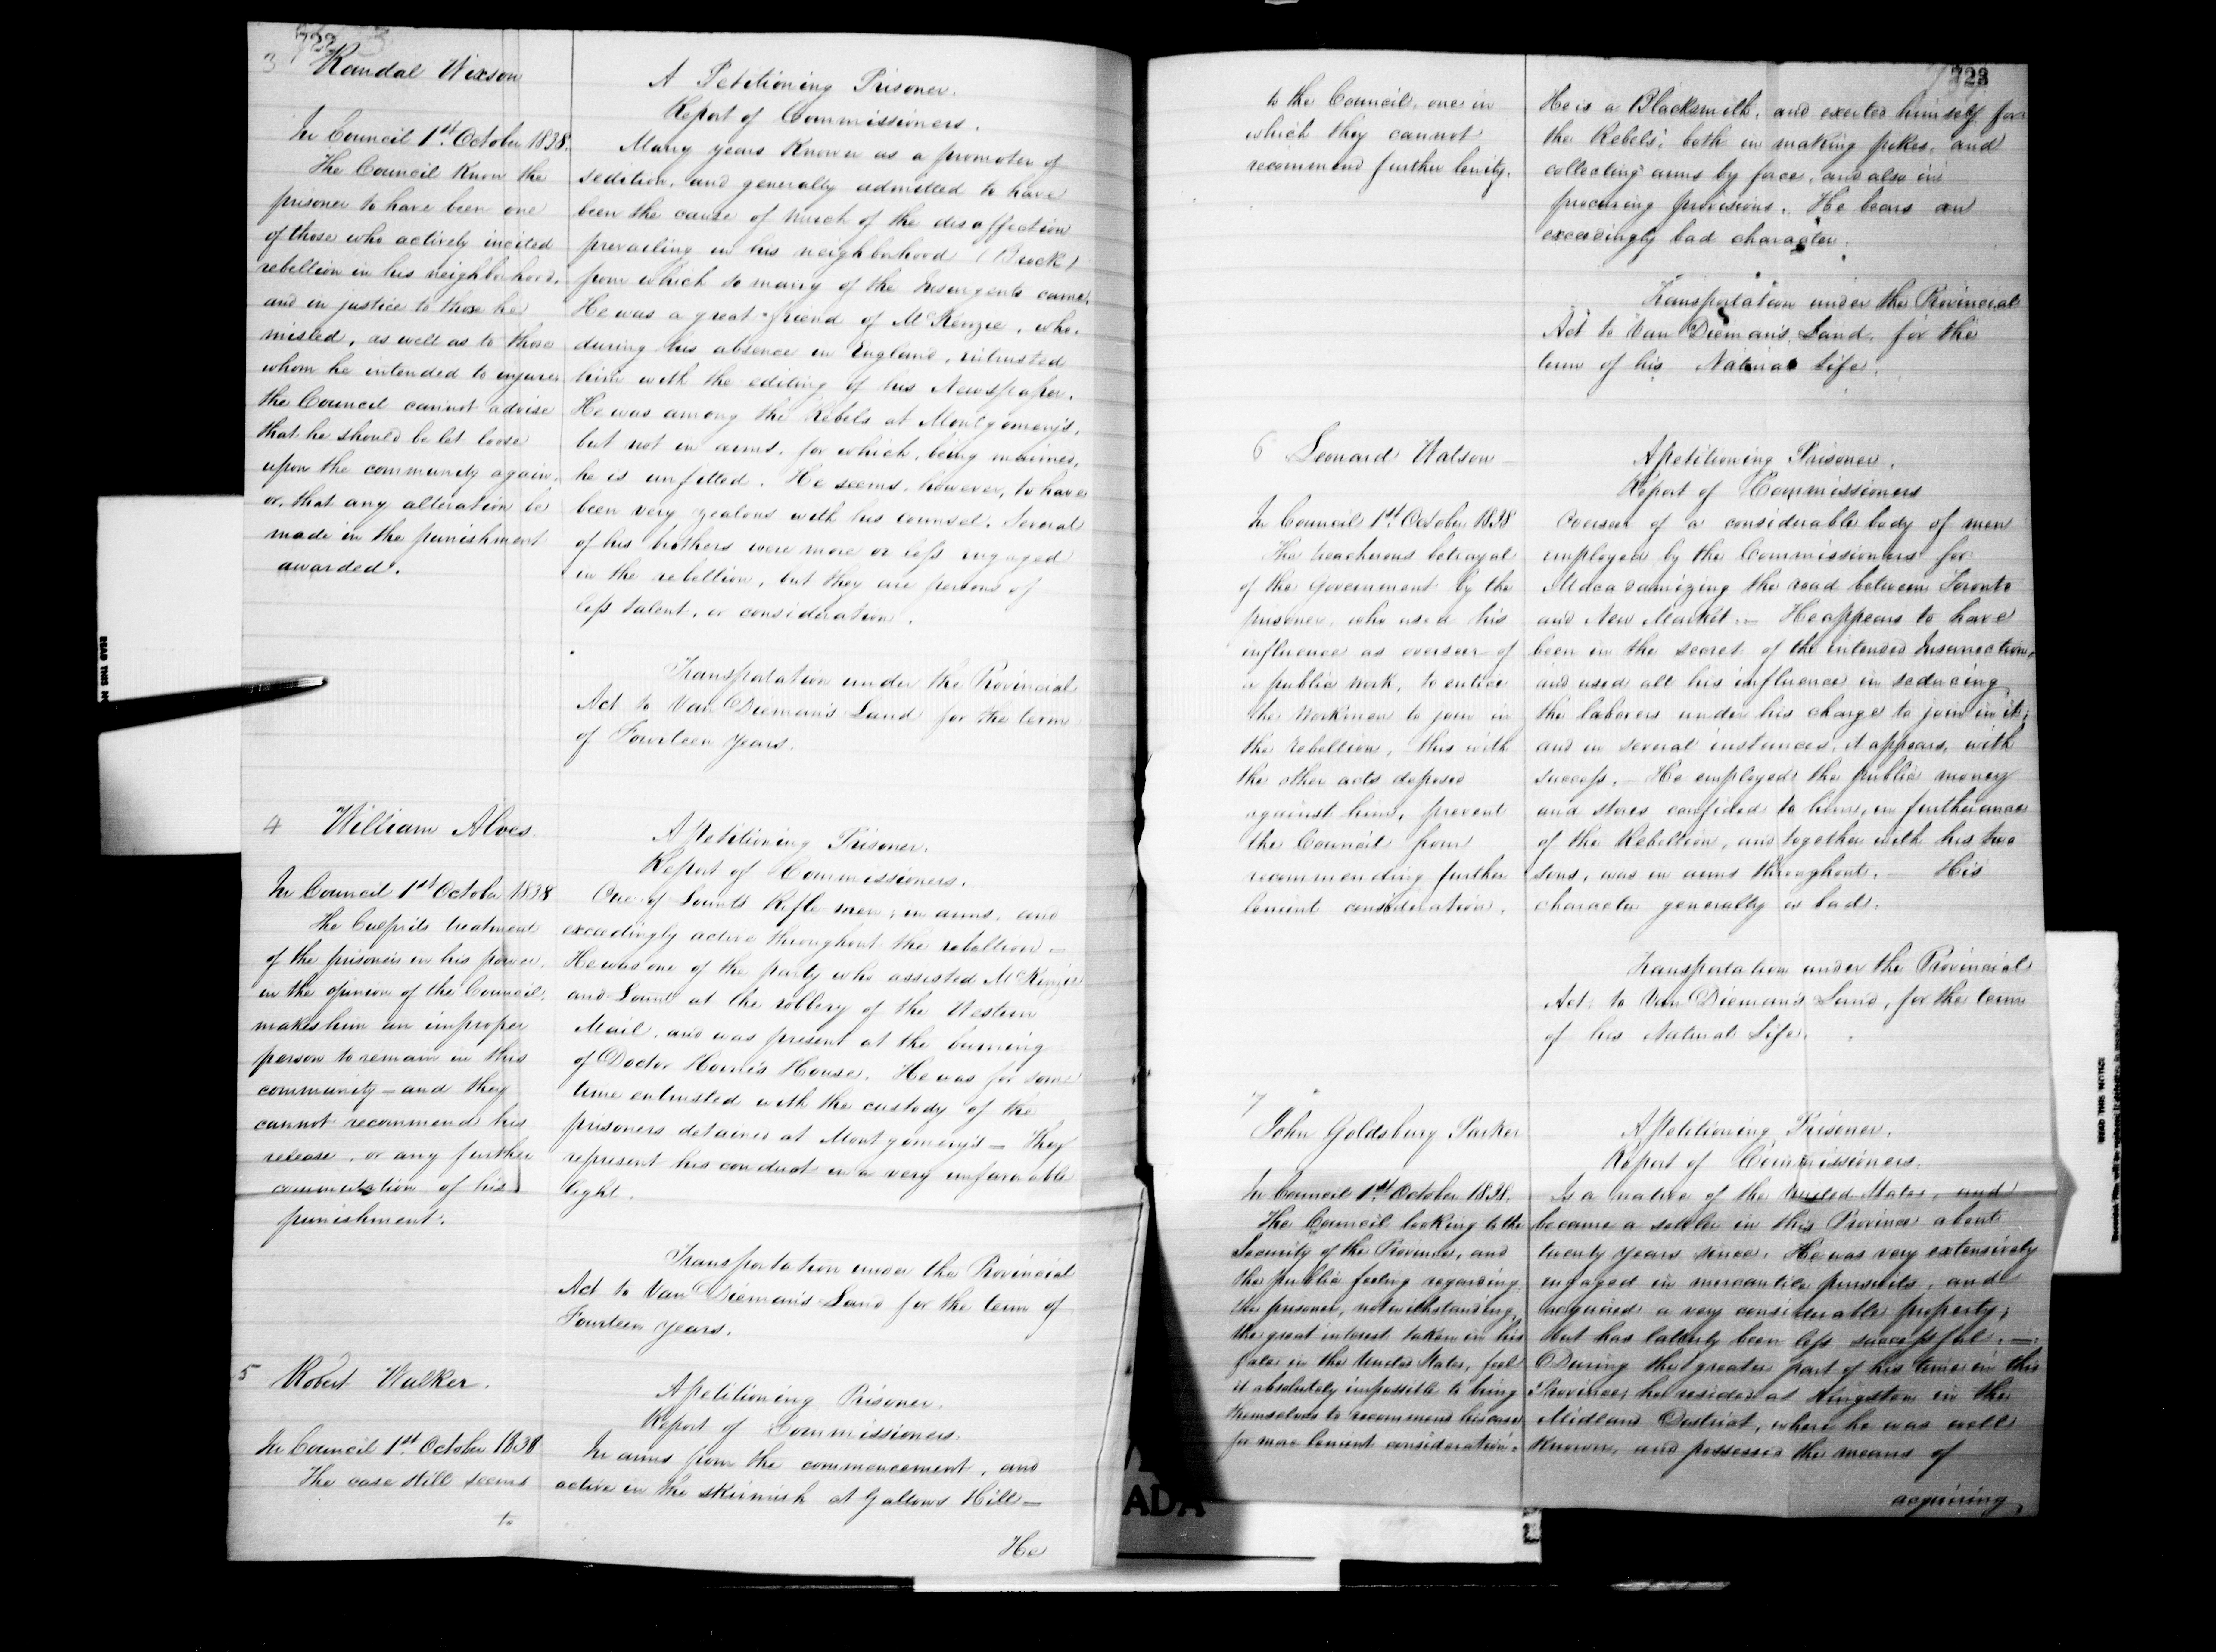 722
3 Randal Wixson
In Council 1st October 1838.
The Council know the
prisoner to have been one
of those who actively incited
rebellion in his neighborhood,
and in justice to those he
misled, as well as to those
whom he intended to injure
the Council cannot advise
that he should be let loose
upon the community again,
or, that any alteration be
made in the punishment
awarded.
A Petitioning Prisoner.
Report of Commissioners.
Many years known as a promoter of
sedition, and generally admitted to have
been the cause of much of the disaffection
prevailing in his neighborhood (Brock)
from which so many of the Insurgents came.
He was a great friend of McKenzie, who,
during his absence in England, intrusted
him with the editing of his Newspaper.
He was among the Rebels at Montgomery's,
but not in arms, for which, being maimed,
he is unfitted. He seems, however, to have
been very zealous with his counsel. Several
of his brothers were more or less engaged
in the rebellion, but they are persons of
less talent, or consideration.
Transportation under the Provincial
Act to Van Dieman's Land for the term
of Fourteen years.
4 William Alves
In Council 1st October 1838
The Culprits treatment
of the prisoners in his power,
in the opinion of the Council,
makes him an improper
person to remain in this
community — and they
cannot recommend his
release, or any further
commutation of his
punishment.
A Petitioning Prisoner.
Report of Commissioners.
One of Lount's Rifle men; in arms, and
exceedingly active throughout the rebellion —
He was one of the party who assisted McKenzie
and Lount at the robbery of the Western
Mail, and was present at the burning
of Doctor Horne's House. He was for some
time entrusted with the custody of the
prisoners detained at Montgomery's — They
represent his conduct in a very unfavorable
light.
Transportation under the Provincial
Act to Van Dieman's Land for the term of
Fourteen years.
5 Robert Walker.
In Council 1st October 1838
The case still seems
to
A Petitioning Prisoner.
Report of Commissioners.
In arms from the commencement, and
active in the skirmish at Gallows Hill —
He
723
to the Council, one in
which they cannot
recommend further lenity.
He is a Blacksmith, and exerted himself for
the Rebels; both in making pikes, and
collecting arms by force, and also in
procuring provisions. He bears an
exceedingly bad character.
Transportation under the Provincial
Act to Van Dieman's Land, for the
term of his Natural Life.
6 Leonard Watson
In Council 1st October 1838
The treacherous betrayal
of the Government by the
prisoner, who used his
influence as overseer of
a public work, to entice
the Workmen to join in
the rebellion, this with
the other acts deposed
against him, prevent
the Council from
recommending further
lenient consideration.
A Petitioning Prisoner.
Report of Commissioners
Overseer of a considerable body of men
employed by the Commissioners for
Macadamizing the road between Toronto
and New Market. — He appears to have
been in the secret of the intended Insurrection,
and used all his influence in seducing
the laborers under his charge to join in it;
and in several instances, it appears, with
success. — He employed the public money
and stores confided to him, in furtherance
of the Rebellion, and together with his two
sons, was in arms throughout. — His
character generally is bad.
Transportation under the Provincial
Act, to Van Dieman's Land, for the term
of his Natural Life.
7
John Goldsbury Parker
In Council 1st October 1838.
The Council looking to the
Security of the Province, and
the public feeling regarding
the prisoner, notwithstanding
the great interest taken in his
fate in the United States, feel
it absolutely impossible to bring
themselves to recommend his case
for more lenient consideration.
A Petitioning Prisoner.
Report of Commissioners.
Is a native of the United States, and
became a settler in this Province about
twenty years since. He was very extensively
engaged in mercantile pursuits, and
acquired a very considerable property;
but has latterly been less successful. —
During the greater part of his time in this
Province, he resided at Kingston in the
Midland District, where he was well
known, and possessed the means of
acquiring
ADA
READ THIS NOTICE